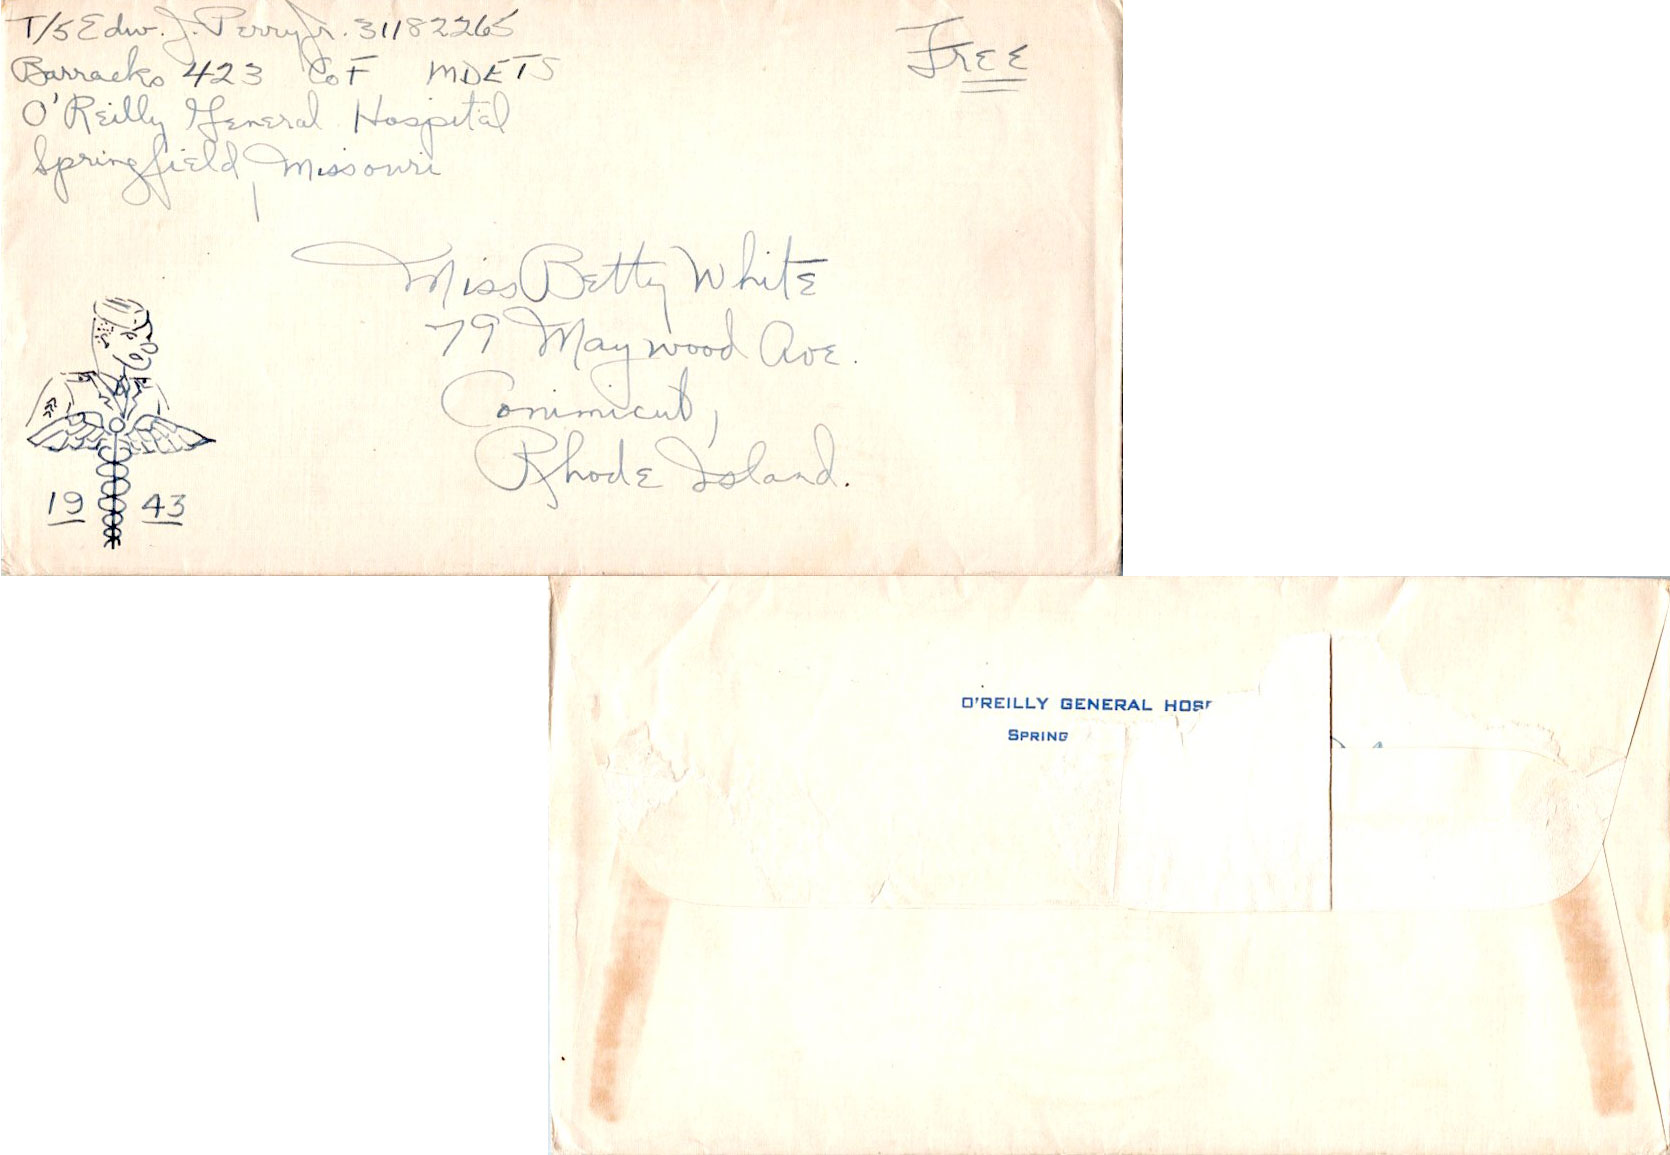 T/5 Edw. J. Perry Jr. 31182265
Barracks 423 Co F MDETS
O'Reilly General Hospital
Springfield, Missouri
Free
Miss Betty White
79 Maywood Ave.
Conimicut,
Rhode Island.
19 43
O'REILLY GENERAL HOSP
SPRING